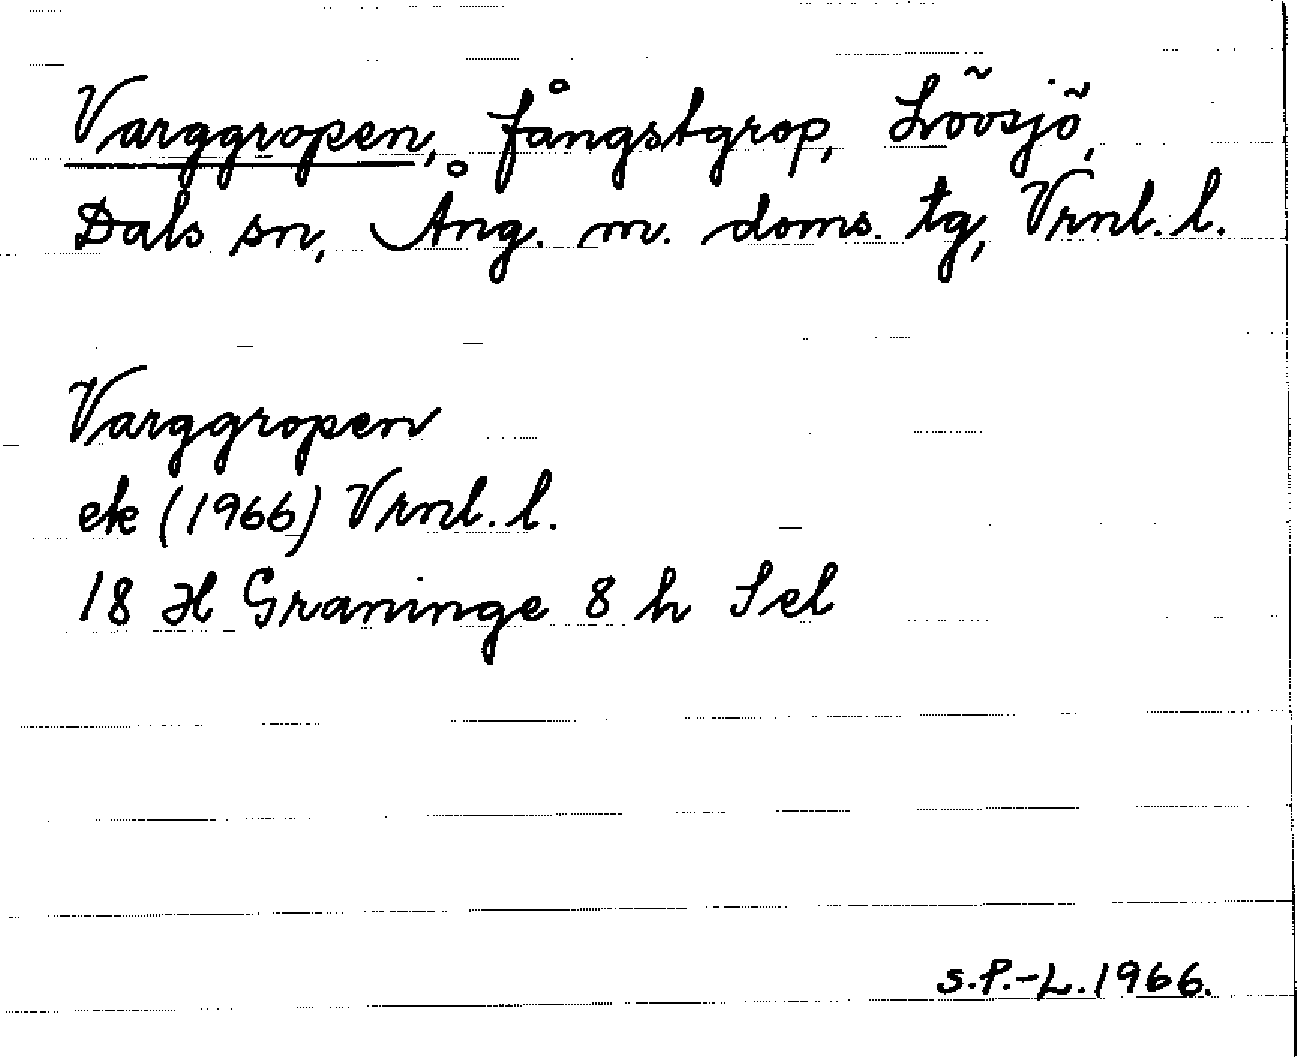 Varggropen, fångstgrop, Lövsjö,
Dals sn, Ång. m. doms. tg, Vrnl. l.
Varggropen
ek (1966) Vrnl. l.
18 H Graninge 8 h Sel
S.P.-L. 1966.